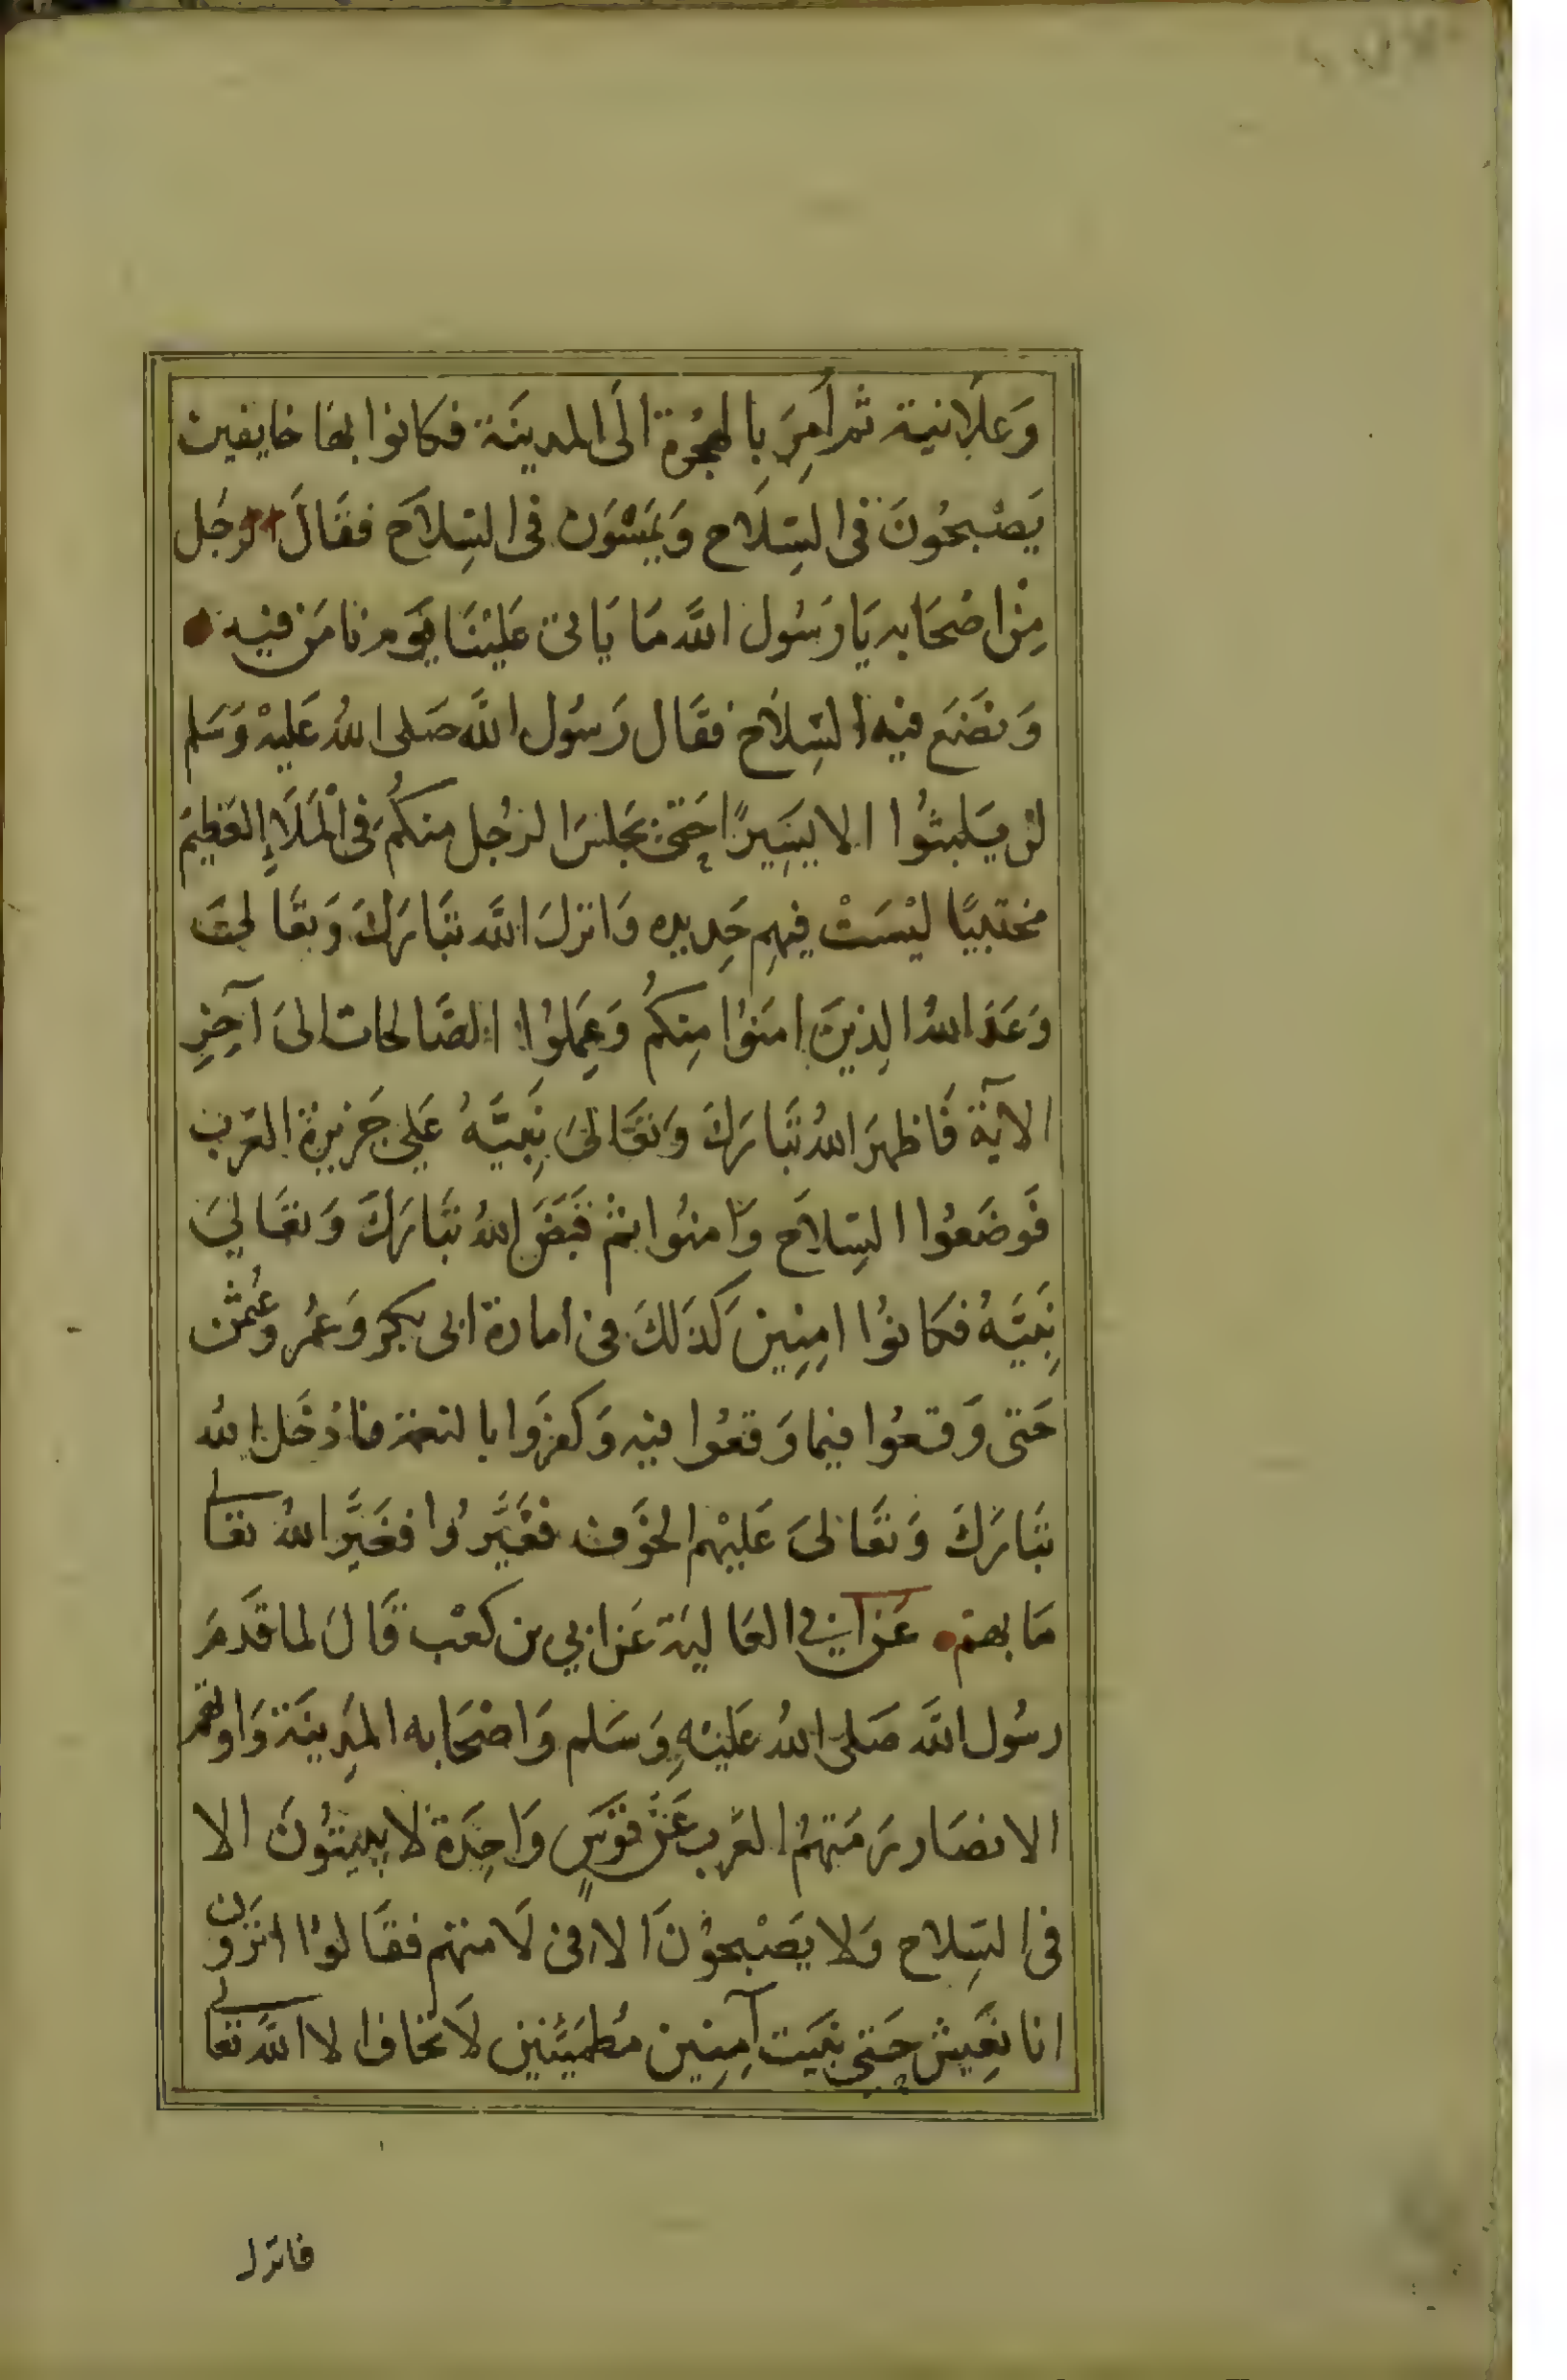 وَعَلَانية ثم أُمِرَ بِالهجْرة الَى المدينَة فكانوا بهَا خايفين
يَصْبحُونَ فى السِلَاح وَيمَسُوَن فى السِلاَح فقَالَ رجَل
مِنْ اصْحَابه يَا رَسُول اللَّه مَا يَاتى عَليْنَا يَوم نامَن فيه
وَنضَع فيه السِلَاح فقَال رَسُول اللَّه صَلى اللهُ عَليْه وَسَلم
لن يَلبثوُا الا يسَيرًا حَتى يَجلسَ الرجُل منكُم فى الْمَلَاءِ العَظيم
محتبيًا ليْسَتْ فيهِم حَديده وَانزلَ اللَّه تبَارَكَ وَتعَالىَ
وَعَدَ اللهُ الذينَ امَنوُا مِنكُم وَعَمِلوُا الصَّالحات الىَ آخِرِ
الآية فَاظهرَ اللهُ تَبارَكَ وَتعَالىَ نَبِيَّهُ عَلى جَزيرة العَرب
فَوضَعُوا السِلاَح وَامنوُا ثمْ قبَضَ اللهُ تبَارَكَ وَتعَالىَ
نَبِيَّهُ فكانوُا امِنِين كَذَلكَ فى امارة ابى بكر وَعُمر وَعُثمن
حَتى وَقعوُا فيما وَقعُوا فيه وَكفرُوا بالنعمة فادْخَل الله
تبَارَكَ وَتعَالىَ عَليْهم الخَوف فغَيَّرُوا فغَيَّر اللهُ تعَالى
مَا بهمْ عَن ابى العَالية عَن ابي بن كعْب قَالَ لما قدَمَ
رسُول اللَّه صَلى اللهُ عَليْهِ وَسَلم وَاصْحَابه المدِينَة وَاوتهم
الانصَار رَمَتهمُ العَرب عَنْ قوْسٍ وَاحِدَة لا يبيتُونَ الا
فى السِلاح وَلا يَصْبحوُنَ الا فى لَامتهم فقَالوُا اترَون
انا نعَيش حَتى نبَيت آمِنِين مُطمَئنين لاَ نخاف الا اللَّه تعَالى
فانزل